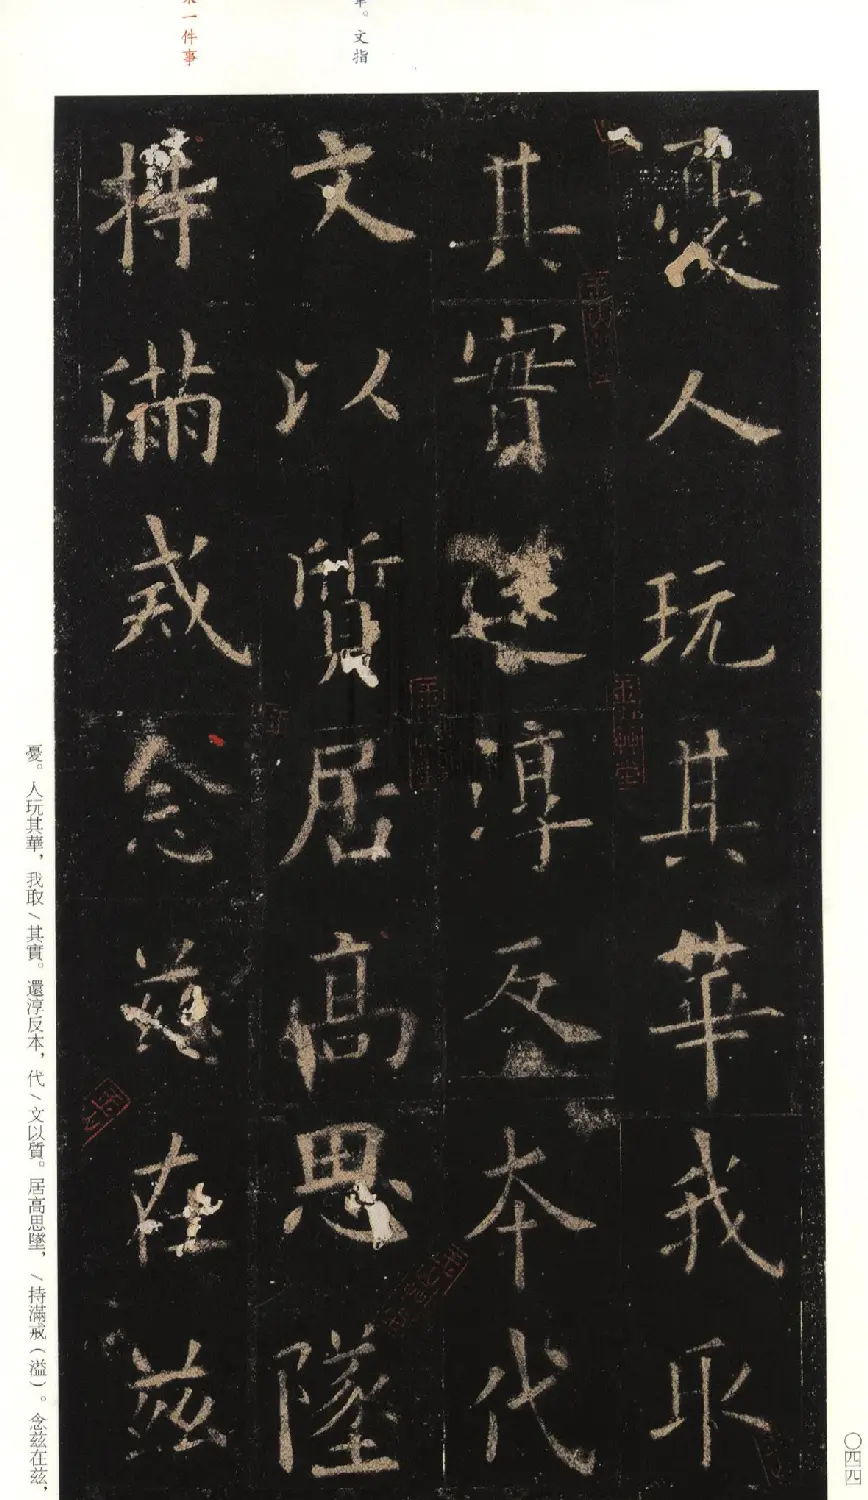 憂人玩其華我取
其實還淳反本代
文以質居高思墜
持滿戒念兹在兹
。文指
一件事
憂。人玩其華，我取/其實。還淳反本，代/文以質。居高思墜，/持滿戒（溢）。念兹在兹，
〇四四